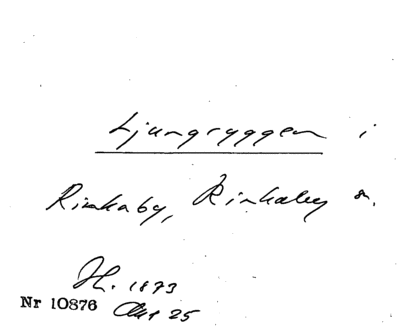 Ljungryggen i
Rinkaby, Rinkaby sn.
H. 1873
Nr 10876
25